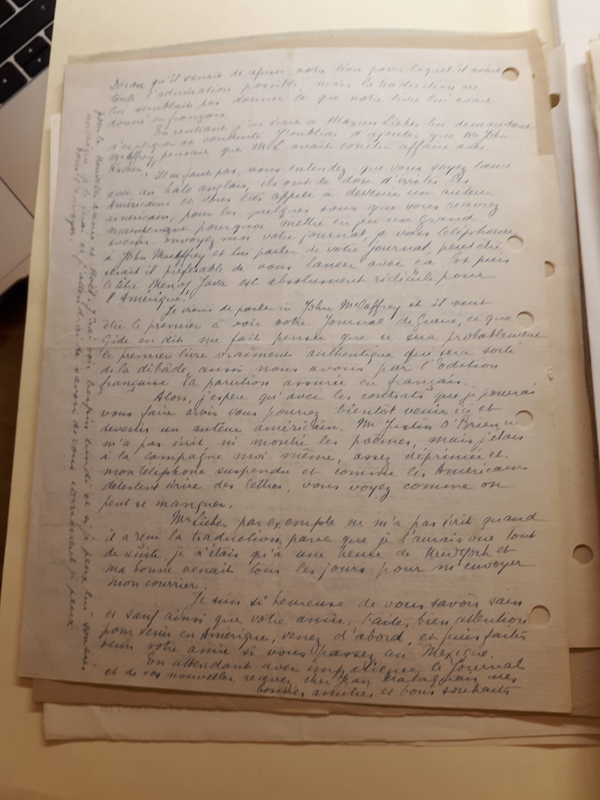 Doran qu'il venait de refuser votre livre pour lequel il avait
toute l'admiration possible mais la traduction ne
lui semblait pas donner ce que votre livre lui avait
donné en français.
En rentrant j'ai écrit à Maxim Lieber lui demandant
d'expliquer sa conduite. J'oubliais d'ajouter que Mr John
McCaffrey pensait que Mr L. avait conclu affaire avec
"Il ne faut pas, vous entendez que vous soyez lancé
avec un halo anglais, ils ont le don d'irriter les
Américains et vous êtes appelé à devenir un auteur
américain; pour les quelques sous que vous recevrez
maintenant pourquoi mettre en jeu un grand
avenir envoyez moi votre journal, je vais téléphoner
à John McCaffrey et lui parler de votre journal, peut être
serait il préférable de vous lancer avec ça. Et puis
le titre Men of Java est absolument ridicule pour
l'Amérique.
Je viens de parler à John McCaffrey et il veut
être le premier à voir votre Journal de Guerre, ce que
Gide en dit me fait penser que ce sera probablement
le premier livre vraiment authentique qui sera sorti
de la débâcle, aussi nous avons par l'édition
française la parution assurée en français.
Alors, j'espère qu'avec les contrats que je pourrai
vous faire avoir vous pourrez bientôt venir ici et
devenir un auteur américain. Mr Justin O'Brien ne
m'a pas écrit, ni montré les poèmes, mais j'étais
à la campagne moi même, assez déprimée et
mon téléphone suspendu et comme les Américains
détestent écrire des lettres, vous voyez comme on
peut se manquer.
Mr Lieber par exemple ne m'a pas écrit quand
il a reçu la traduction, parce que je l'aurais vue tout
de suite, je n'étais qu'à une heure de New York et
ma bonne venait tous les jours pour m'envoyer
mon courrier.
Je suis si heureuse de vous savoir sain
et sauf ainsi que votre amie. Faites bien attention
pour venir en Amérique, venez d'abord, et puis faites
venir votre amie si vous passez au Mexique.
En attendant avec impatience le Journal
et de vos nouvelles, recevez cher Jean Malaquais mes
bonnes amitiés et bons souhaits
pour la nouvelle année et Noël.